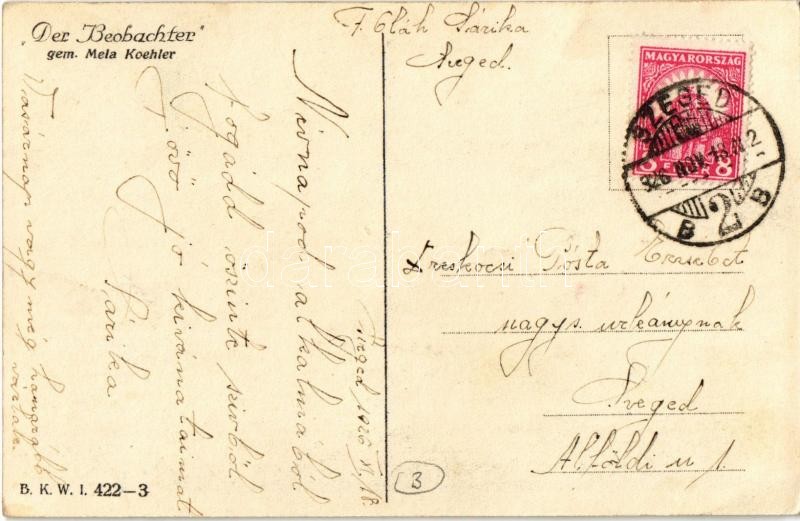 "Der Beobachter"
gem. Mela Koehler
F. Oláh Sárika
Szeged.
MAGYARORSZÁG
8 FILLÉR 8
SZEGED
926 NOV. 18
B 2 B
Szeged 1926 XI. 18.
Névnapod alkalmából
Fogadd őszinte szívből
Jövő jó kivánataimat
Sárika
Vasárnap vagy még hamarabb
várlak.
Póta Erzsébet
nagys. urleánynak
Szeged
Alföldi u 1.
B. K. W. I. 422-3
3
darabanth